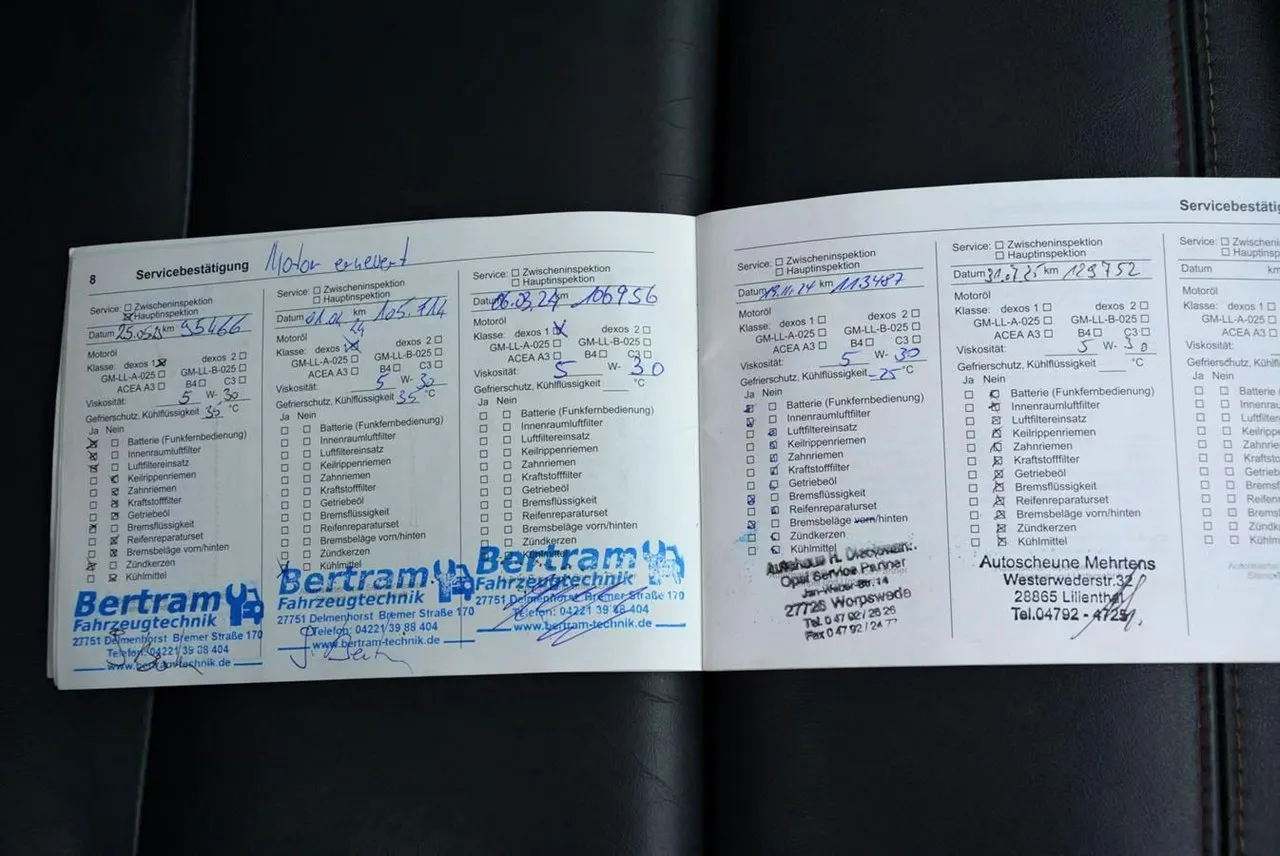 8 Servicebestätigung Motor erneuert
Service: ☐ Zwischeninspektion
☒ Hauptinspektion
Datum 25.05. km 95466
Motoröl
Klasse: dexos 1 ☒ dexos 2 ☐
GM-LL-A-025 ☐ GM-LL-B-025 ☐
ACEA A3 ☐ B4 ☐ C3 ☐
Viskosität: 5 W- 30
Gefrierschutz, Kühlflüssigkeit 35 °C
Ja Nein
Batterie (Funkfernbedienung)
Innenraumluftfilter
Luftfiltereinsatz
Keilrippenriemen
Zahnriemen
Kraftstofffilter
Getriebeöl
Bremsflüssigkeit
Reifenreparaturset
Bremsbeläge vorn/hinten
Zündkerzen
Kühlmittel
Bertram
Fahrzeugtechnik
27751 Delmenhorst Bremer Straße 170
Telefon: 04221 39 88 404
www.bertram-technik.de
Service: ☐ Zwischeninspektion
☐ Hauptinspektion
Datum 01.02. 24 km 105.714
Motoröl
Klasse: dexos 1 ☒ dexos 2 ☐
GM-LL-A-025 ☐ GM-LL-B-025 ☐
ACEA A3 ☐ B4 ☐ C3 ☐
Viskosität: 5 W- 30
Gefrierschutz, Kühlflüssigkeit 35 °C
Ja Nein
Batterie (Funkfernbedienung)
Innenraumluftfilter
Luftfiltereinsatz
Keilrippenriemen
Zahnriemen
Kraftstofffilter
Getriebeöl
Bremsflüssigkeit
Reifenreparaturset
Bremsbeläge vorn/hinten
Zündkerzen
Kühlmittel
Bertram
Fahrzeugtechnik
27751 Delmenhorst Bremer Straße 170
Telefon: 04221 39 88 404
www.bertram-technik.de
Service: ☐ Zwischeninspektion
☐ Hauptinspektion
Datum 06.03.24 km 106956
Motoröl
Klasse: dexos 1 ☒ dexos 2 ☐
GM-LL-A-025 ☐ GM-LL-B-025 ☐
ACEA A3 ☐ B4 ☐ C3 ☐
Viskosität: 5 W- 30
Gefrierschutz, Kühlflüssigkeit °C
Ja Nein
Batterie (Funkfernbedienung)
Innenraumluftfilter
Luftfiltereinsatz
Keilrippenriemen
Zahnriemen
Kraftstofffilter
Getriebeöl
Bremsflüssigkeit
Reifenreparaturset
Bremsbeläge vorn/hinten
Zündkerzen
Kühlmittel
Bertram
Fahrzeugtechnik
27751 Delmenhorst Bremer Straße 170
Telefon: 04221 39 88 404
www.bertram-technik.de
Service: ☐ Zwischeninspektion
☐ Hauptinspektion
Datum 19.11.24 km 113487
Motoröl
Klasse: dexos 1 ☐ dexos 2 ☐
GM-LL-A-025 ☐ GM-LL-B-025 ☐
ACEA A3 ☐ B4 ☐ C3 ☐
Viskosität: 5 W- 30
Gefrierschutz, Kühlflüssigkeit -25 °C
Ja Nein
Batterie (Funkfernbedienung)
Innenraumluftfilter
Luftfiltereinsatz
Keilrippenriemen
Zahnriemen
Kraftstofffilter
Getriebeöl
Bremsflüssigkeit
Reifenreparaturset
Bremsbeläge vorn/hinten
Zündkerzen
Kühlmittel
Autohaus H.
Opel Service Partner
27726 Worpswede
Servicebestätig
Service: ☐ Zwischeninspektion
☐ Hauptinspektion
Datum 31.07.25 km 129752
Motoröl
Klasse: dexos 1 ☐ dexos 2 ☐
GM-LL-A-025 ☐ GM-LL-B-025 ☐
ACEA A3 ☐ B4 ☐ C3 ☐
Viskosität: 5 W- 30
Gefrierschutz, Kühlflüssigkeit °C
Ja Nein
Batterie (Funkfernbedienung)
Innenraumluftfilter
Luftfiltereinsatz
Keilrippenriemen
Zahnriemen
Kraftstofffilter
Getriebeöl
Bremsflüssigkeit
Reifenreparaturset
Bremsbeläge vorn/hinten
Zündkerzen
Kühlmittel
Autoscheune Mehrtens
Westerwederstr.32
28865 Lilienthal
Tel.04792 - 4725
Service: ☐ Zwischenin
☐ Hauptinspe
Datum km
Motoröl
Klasse: dexos 1 ☐
GM-LL-A-025 ☐
ACEA A3 ☐
Viskosität:
Gefrierschutz, Kühlflüssi
Ja Nein
Batterie (Fun
Innenrauml
Luftfilterein
Keilripper
Zahnrieme
Kraftstofff
Getriebeö
Bremsflüs
Reifenrep
Bremsbel
Zündkerz
Kühlmitte